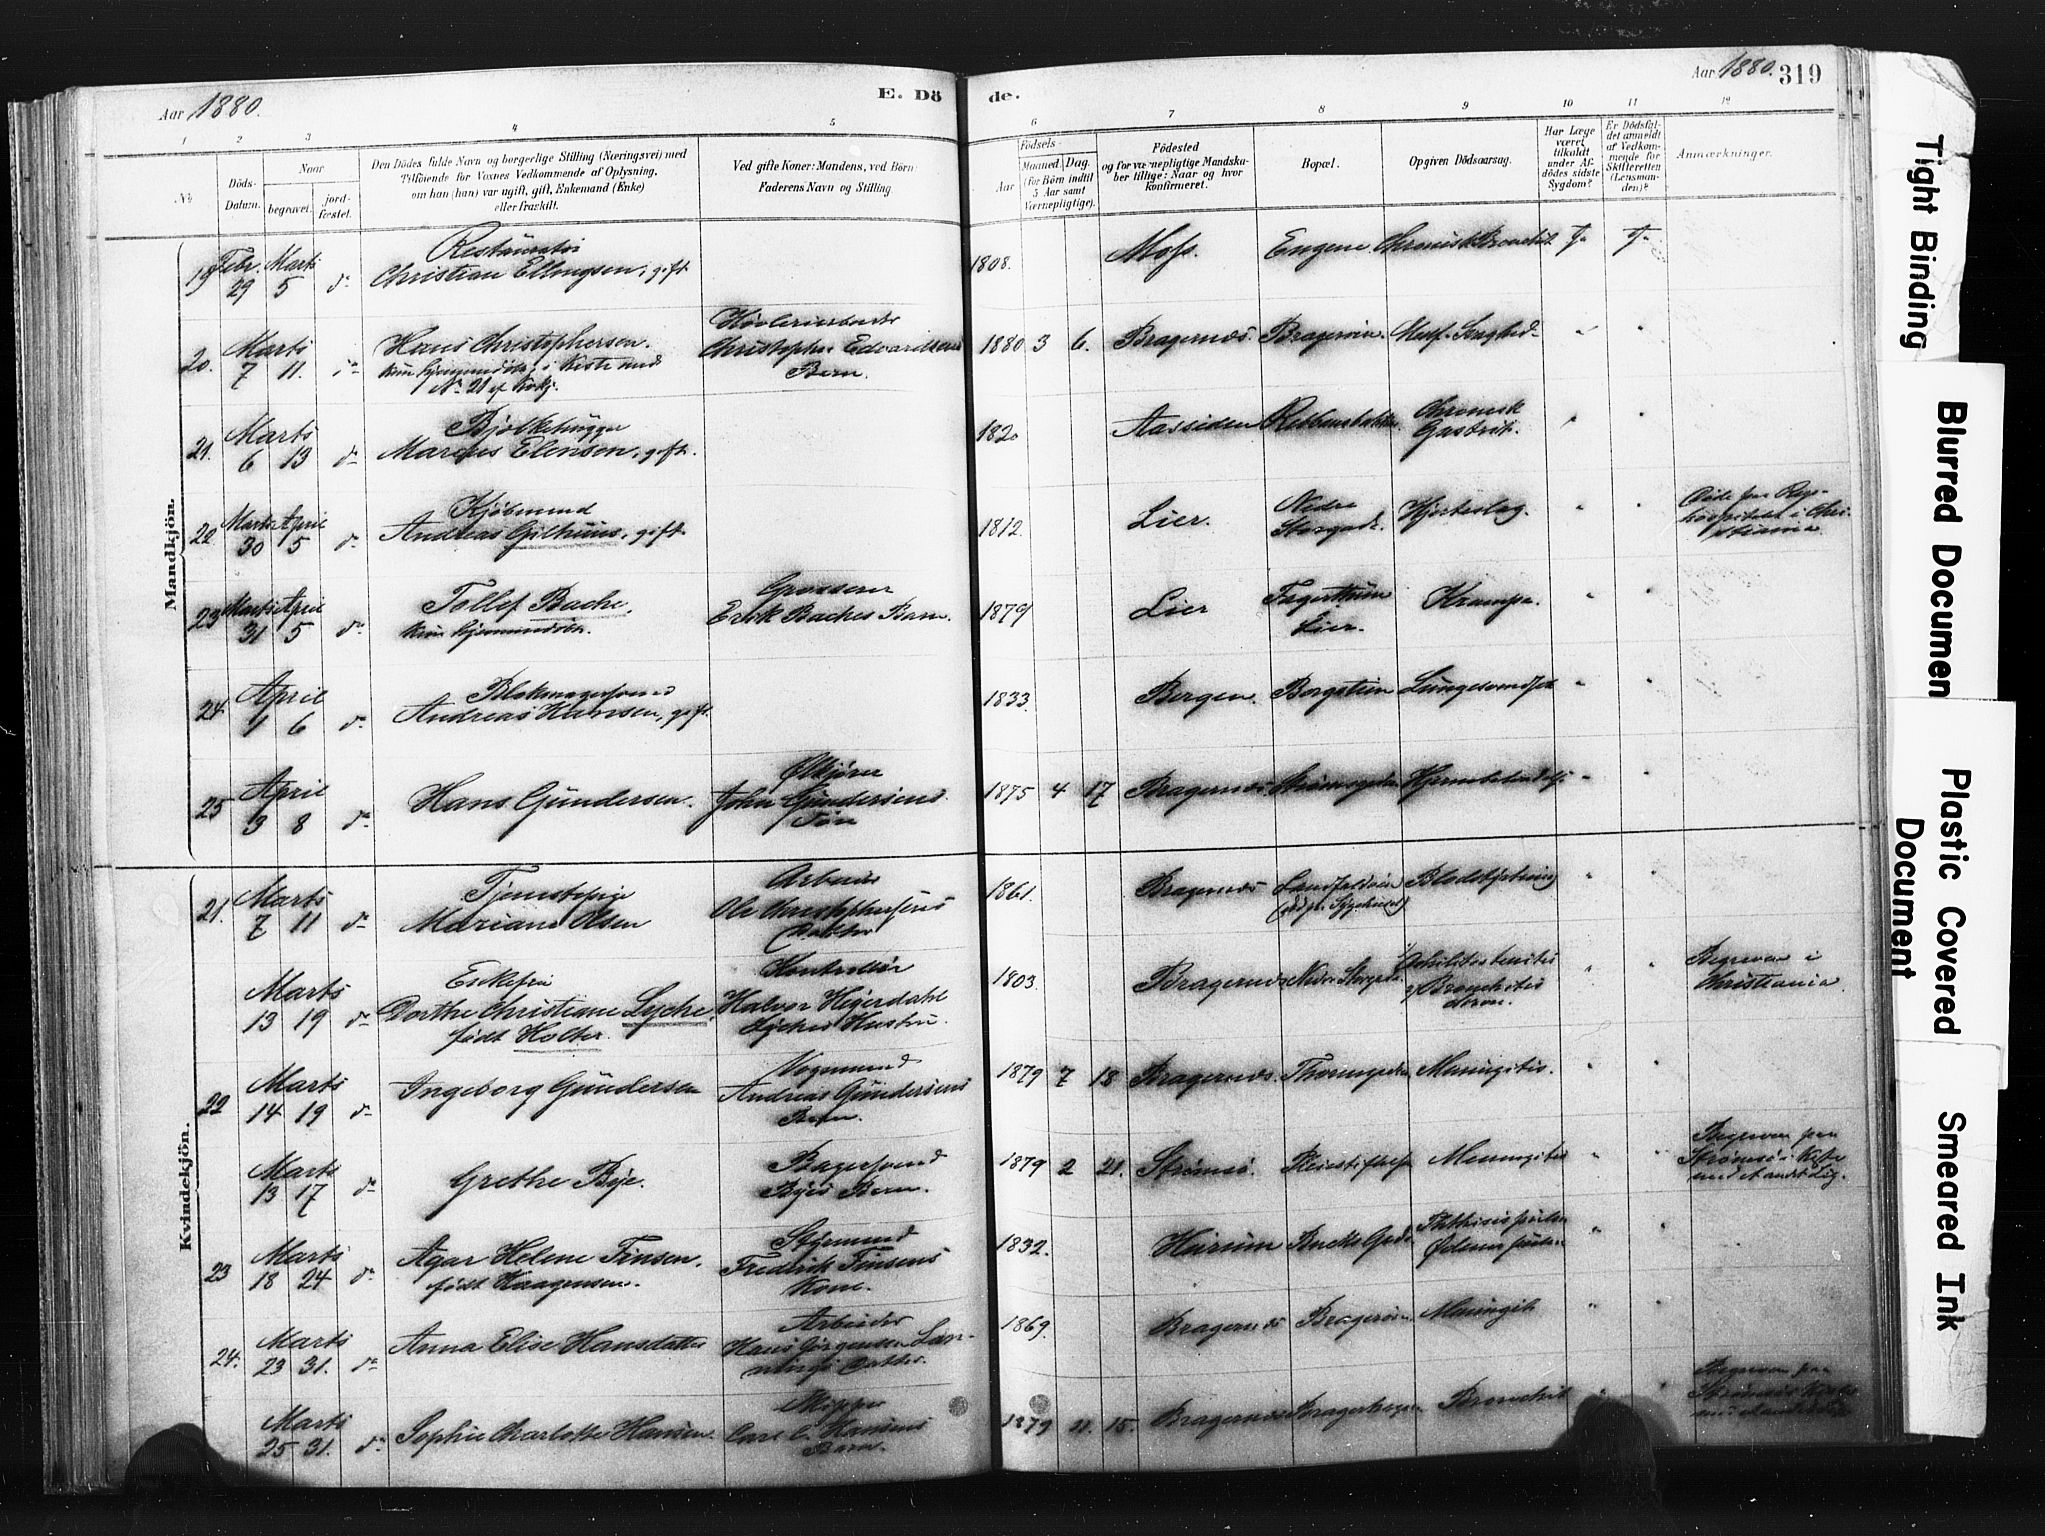 Aar 1880.
E. Dö
de.
Aar 1880. 319
1 2 3 4 5 6 7 8 9 10 11 12
No.
Döds-
Datum.
Naar
begravet.
jord-
fæstet.
Den Dödes fulde Navn og borgerlige Stilling (Næringsvei) med
Tilföiende for Voxnes Vedkommende af Oplysning,
om han (hun) var ugift, gift, Enkemand (Enke)
eller fraskilt.
Ved gifte Koner: Mandens, ved Börn:
Faderens Navn og Stilling.
Födsels-
Aar
Maaned. Dag.
(for Börn indtil
5 Aar samt
Værnepligtige).
Födested
og for værnepligtige Mandska-
ber tillige: Naar og hvor
konfirmeret.
Bopæl.
Opgiven Dödsaarsag.
Har Læge
været
tilkaldt
under Af-
dödes sidste
Sygdom?
Er Dödsfal-
det anmeldt
af Vedkom-
mende for
Skifteretten
(Lensman-
den)?
Anmærkninger.
Mandkjön.
19 Febr. 29 Marts 5 do
Restauratör
Christian Ellingsen, gift
1808. Moss. Engene Chronisk Bronchit Ja Ja
20. Marts 7 11.
Hans Christophersen.
kun hjemmedöbt, i Kiste med
No 21 af Kvkj.
Christopher Edvardsens
Barn.
1880 3 6. Bragernæs. Bragerøen. "
21. Marts 6 13 do
Bjelkehugger
Marcus Elensen, gift.
1820 Aassiden Chronisk
Gastrit. " "
22 Marts 30 April 5 do
Kjøbmand
Andreas Gilhuus, gift
1812. Lier. Nedre
Storgade. Hjerteslag. " "
Døde paa Rigs-
hospitalet i Chri-
stiania.
23 Marts 31 April 5 do
Tollef Bache.
kun hjemmedöbt.
Grosserer
Erik Baches Barn.
1879 Lier Fagertun
Lier. Krampe. " "
24 April 1 6 do
Blokmagersvend
Andreas Hansen, gift.
1833. Bergen. Bergstien " "
25 April 3 8 do
Hans Gundersen.
Ølkjører
John Gundersens
Søn
1875 4 17 Bragernæs " "
Kvindekjön.
21. Marts 7 11 do
Tjenestepige
Mariane Olsen
Arbeider
Ole Christophersens
Datter
1861. Bragernæs Landfaldöen
(död p. Sygehuset) " "
Marts 13 19 do
Enkefru
Dorthe Christiane Lyche,
født Holter.
Kontrollör
Halvor Heyerdahl
Lyches Hustru.
1803. Bragernæs Nedre Storgade " "
Begraven i
Christiania.
22 Marts 14 19 do
Ingeborg Gundersen
Vognmand
Andreas Gundersens
Barn.
1879 7 18 Bragernæs. Meningitis. " "
Marts 13 17 do
Grethe Bye.
Bagersvend
Byes Barn.
1879 2 21. Strømsø. Meningitis " "
Begraven paa
Strømsø i Kiste
med et andet Lig.
23 Marts 18 24 do
Agar Helene Finsen.
født Haagensen.
Styrmand
Fredrik Finsens
Kone.
1832. Hurum " "
24. Marts 23 31. do
Anna Elise Hansdatter
Arbeider
Hans Jørgensen
Datter.
1869. Bragernæs Bragerøen Meningit " "
Marts 25 31. do
Sophie Charlotte Hansen.
Carl C. Hansens
Barn.
1879 11. 15. Bragernæs Bronchit " "
Begraven paa
Tight Binding
Blurred Documen
Plastic Covered
Document
Smeared Ink